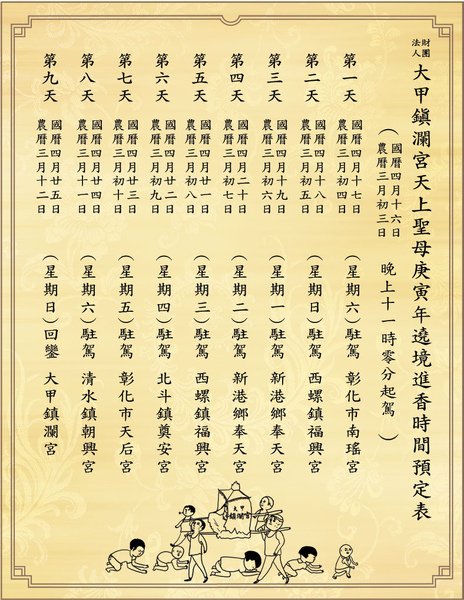 財團法人大甲鎮瀾宮天上聖母庚寅年遶境進香時間預定表
（國曆四月十六日
農曆三月初三日 晚上十一時零分起駕）
第一天 國曆四月十七日 農曆三月初四日 （星期六）駐駕 彰化市南瑤宮
第二天 國曆四月十八日 農曆三月初五日 （星期日）駐駕 西螺鎮福興宮
第三天 國曆四月十九日 農曆三月初六日 （星期一）駐駕 新港鄉奉天宮
第四天 國曆四月二十日 農曆三月初七日 （星期二）駐駕 新港鄉奉天宮
第五天 國曆四月廿一日 農曆三月初八日 （星期三）駐駕 西螺鎮福興宮
第六天 國曆四月廿二日 農曆三月初九日 （星期四）駐駕 北斗鎮奠安宮
第七天 國曆四月廿三日 農曆三月初十日 （星期五）駐駕 彰化市天后宮
第八天 國曆四月廿四日 農曆三月十一日 （星期六）駐駕 清水鎮朝興宮
第九天 國曆四月廿五日 農曆三月十二日 （星期日）回鑾 大甲鎮瀾宮
大甲
鎮瀾宮